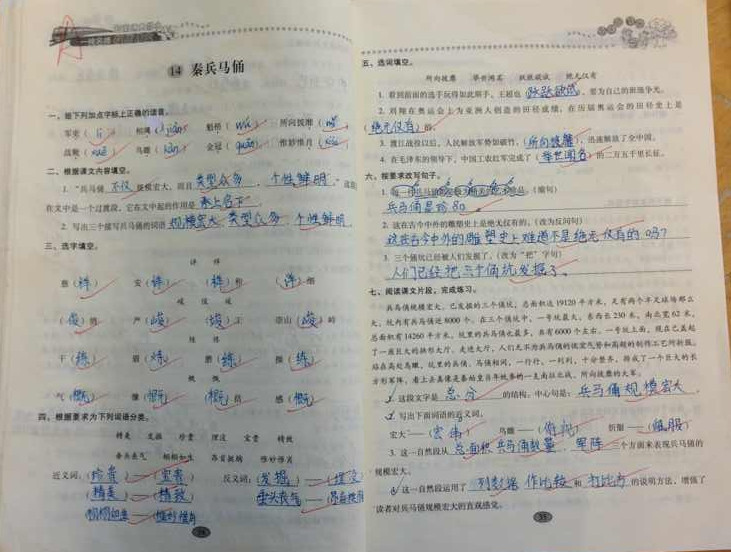 14 秦兵马俑
一、给下列加点字标上正确的读音。
二、根据课文内容填空。
1. "兵马俑 不仅 规模宏大，而且 类型众多 ，个性鲜明 。"这句
在文中是一个过渡段，它在文中起的作用是 承上启下
2. 写出三个描写兵马俑的词语 规模宏大 类型众多 个性鲜明
三、选字填空。
详 祥
慈（祥） 安（祥） （祥）和 （详）细
峻 俊 竣
（俊）俏 严（峻） （竣）工 崇山（峻）岭
练 炼
干（练） （炼） 磨（练） （练）
概 慨
气（概） （概）括 感（慨）
四、根据要求为下列词语分类。
精美 发掘 珍贵 埋没 宝贵 精致
垂头丧气 栩栩如生 昂首挺胸 惟妙惟肖
近义词：（珍贵）——（宝贵） 反义词：（发掘）——（埋没）
（精美）——（精致） （垂头丧气）——（昂首挺胸
（栩栩如生）——（惟妙惟肖
34
五、选词填空。
所向披靡 举世闻名 跃跃欲试 绝无仅有
1. 看到前面的选手玩得如此顺手，王超也（跃跃欲试），要为自己的班级争光。
2. 刘翔在奥运会上为亚洲人创造的田径成绩，在历届奥运会的田径史上是
（绝无仅有）的。
3. 渡江战役以后，人民解放军势如破竹，（所向披靡），迅速解放了全中国。
4. 在毛泽东的领导下，中国工农红军完成了（举世闻名）的二万五千里长征。
六、按要求改写句子。
（缩句）
兵马俑是珍品。
2. 这在古今中外的雕塑史上是绝无仅有的。（改为反问句）
这在古今中外的雕塑史上难道不是绝无仅有的吗？
3. 三个俑坑已经被人们发掘了。（改为"把"字句）
人们已经把三个俑坑发掘了。
七、阅读课文片段，完成练习。
兵马俑规模宏大。已发掘的三个俑坑，总面积达19120平方米，足有两个半足球场那么
大，坑内有兵马俑近8000个。在三个俑坑中，一号坑最大，东西长230米，南北宽62米，
总面积有14260平方米，坑里的兵马俑也最多，共有6000个左右。一号坑上面，现在已盖起
了一座巨大的拱形大厅。走进大厅，人们无不为兵马俑的恢宏气势和高超的制作工艺所折服。
站在高处鸟瞰，坑里的兵俑、马俑相间，一行行，一列列，十分整齐，排成了一个巨大的长
方形军阵，看上去真像是秦始皇当年统率的一支南征北战、所向披靡的大军。
1. 这段文字是 总分 的结构，中心句是：兵马俑规模宏大
2. 写出下面词语的近义词。
宏大——（宏伟） 鸟瞰——（俯视） 折服——（佩服）
3. 这一自然段从 总面积 兵马俑数量 、 军阵 三个方面来表现兵马俑的
规模宏大。
4. 这一自然段运用了 列数据 作比较 和 打比方 的说明方法，增强了
读者对兵马俑规模宏大的直观感觉。
35